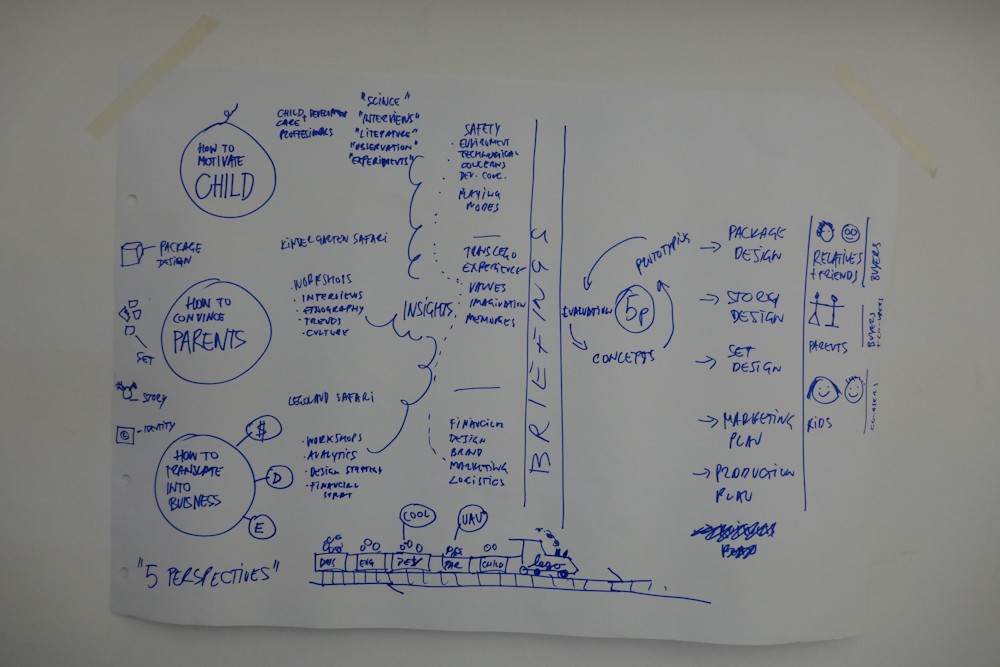 HOW TO
MOTIVATE
CHILD
CHILD DEVELOPMENT
CARE +
PROFFESIONALS
"SCINCE"
"INTERVIEWS"
"LITERATURE"
"OBSERVATION"
"EXPERIMENTS"
SAFETY
· ENVIROMENT
TECHNOLOGICAL
CONCERNS
DEV. CONC.
PLAYING
MODES
PACKAGE
DESIGN
SET
STORY
IDENTITY
HOW TO
CONVINCE
PARENTS
KINDERGARTEN SAFARI
· WORKSHOPS
· INTERVIEWS
· ETNOGRAPHY
· TRENDS
· CULTURE
INSIGHTS
TRANSLEGO
EXPERIENCE
VALUES
IMAGINATION
MEMORIES
HOW TO
TRANSLATE
INTO
BUISNESS
$
D
E
LEGOLAND SAFARI
· WORKSHOPS
· ANALYTICS
· DESIGN STRATEGY
· FINANCIAL
STRAT
FINANCIAL
DESIGN
BRAND
MARKETING
LOGISTICS
BRIEFINGS
PROTOTYPING
EVALUATION
5P
CONCEPTS
→ PACKAGE
DESIGN
→ STORY
DESIGN
→ SET
DESIGN
→ MARKETING
PLAN
→ PRODUCTION
PLAN
RELATIVES
+ FRIENDS
BUYERS
PARENTS
BUYERS
+ CO-USERS
KIDS
CO-USERS
"5 PERSPECTIVES"
COOL
UAU"
BUS
ENG
DES
PAR
CHILD
lego